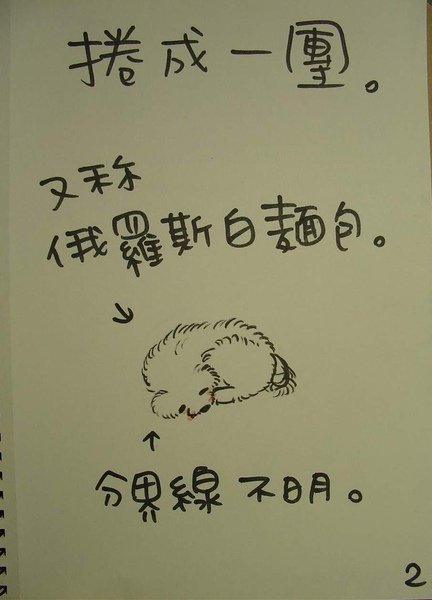 捲成一團。
又称
俄羅斯白麵包。
分界線不明。
2